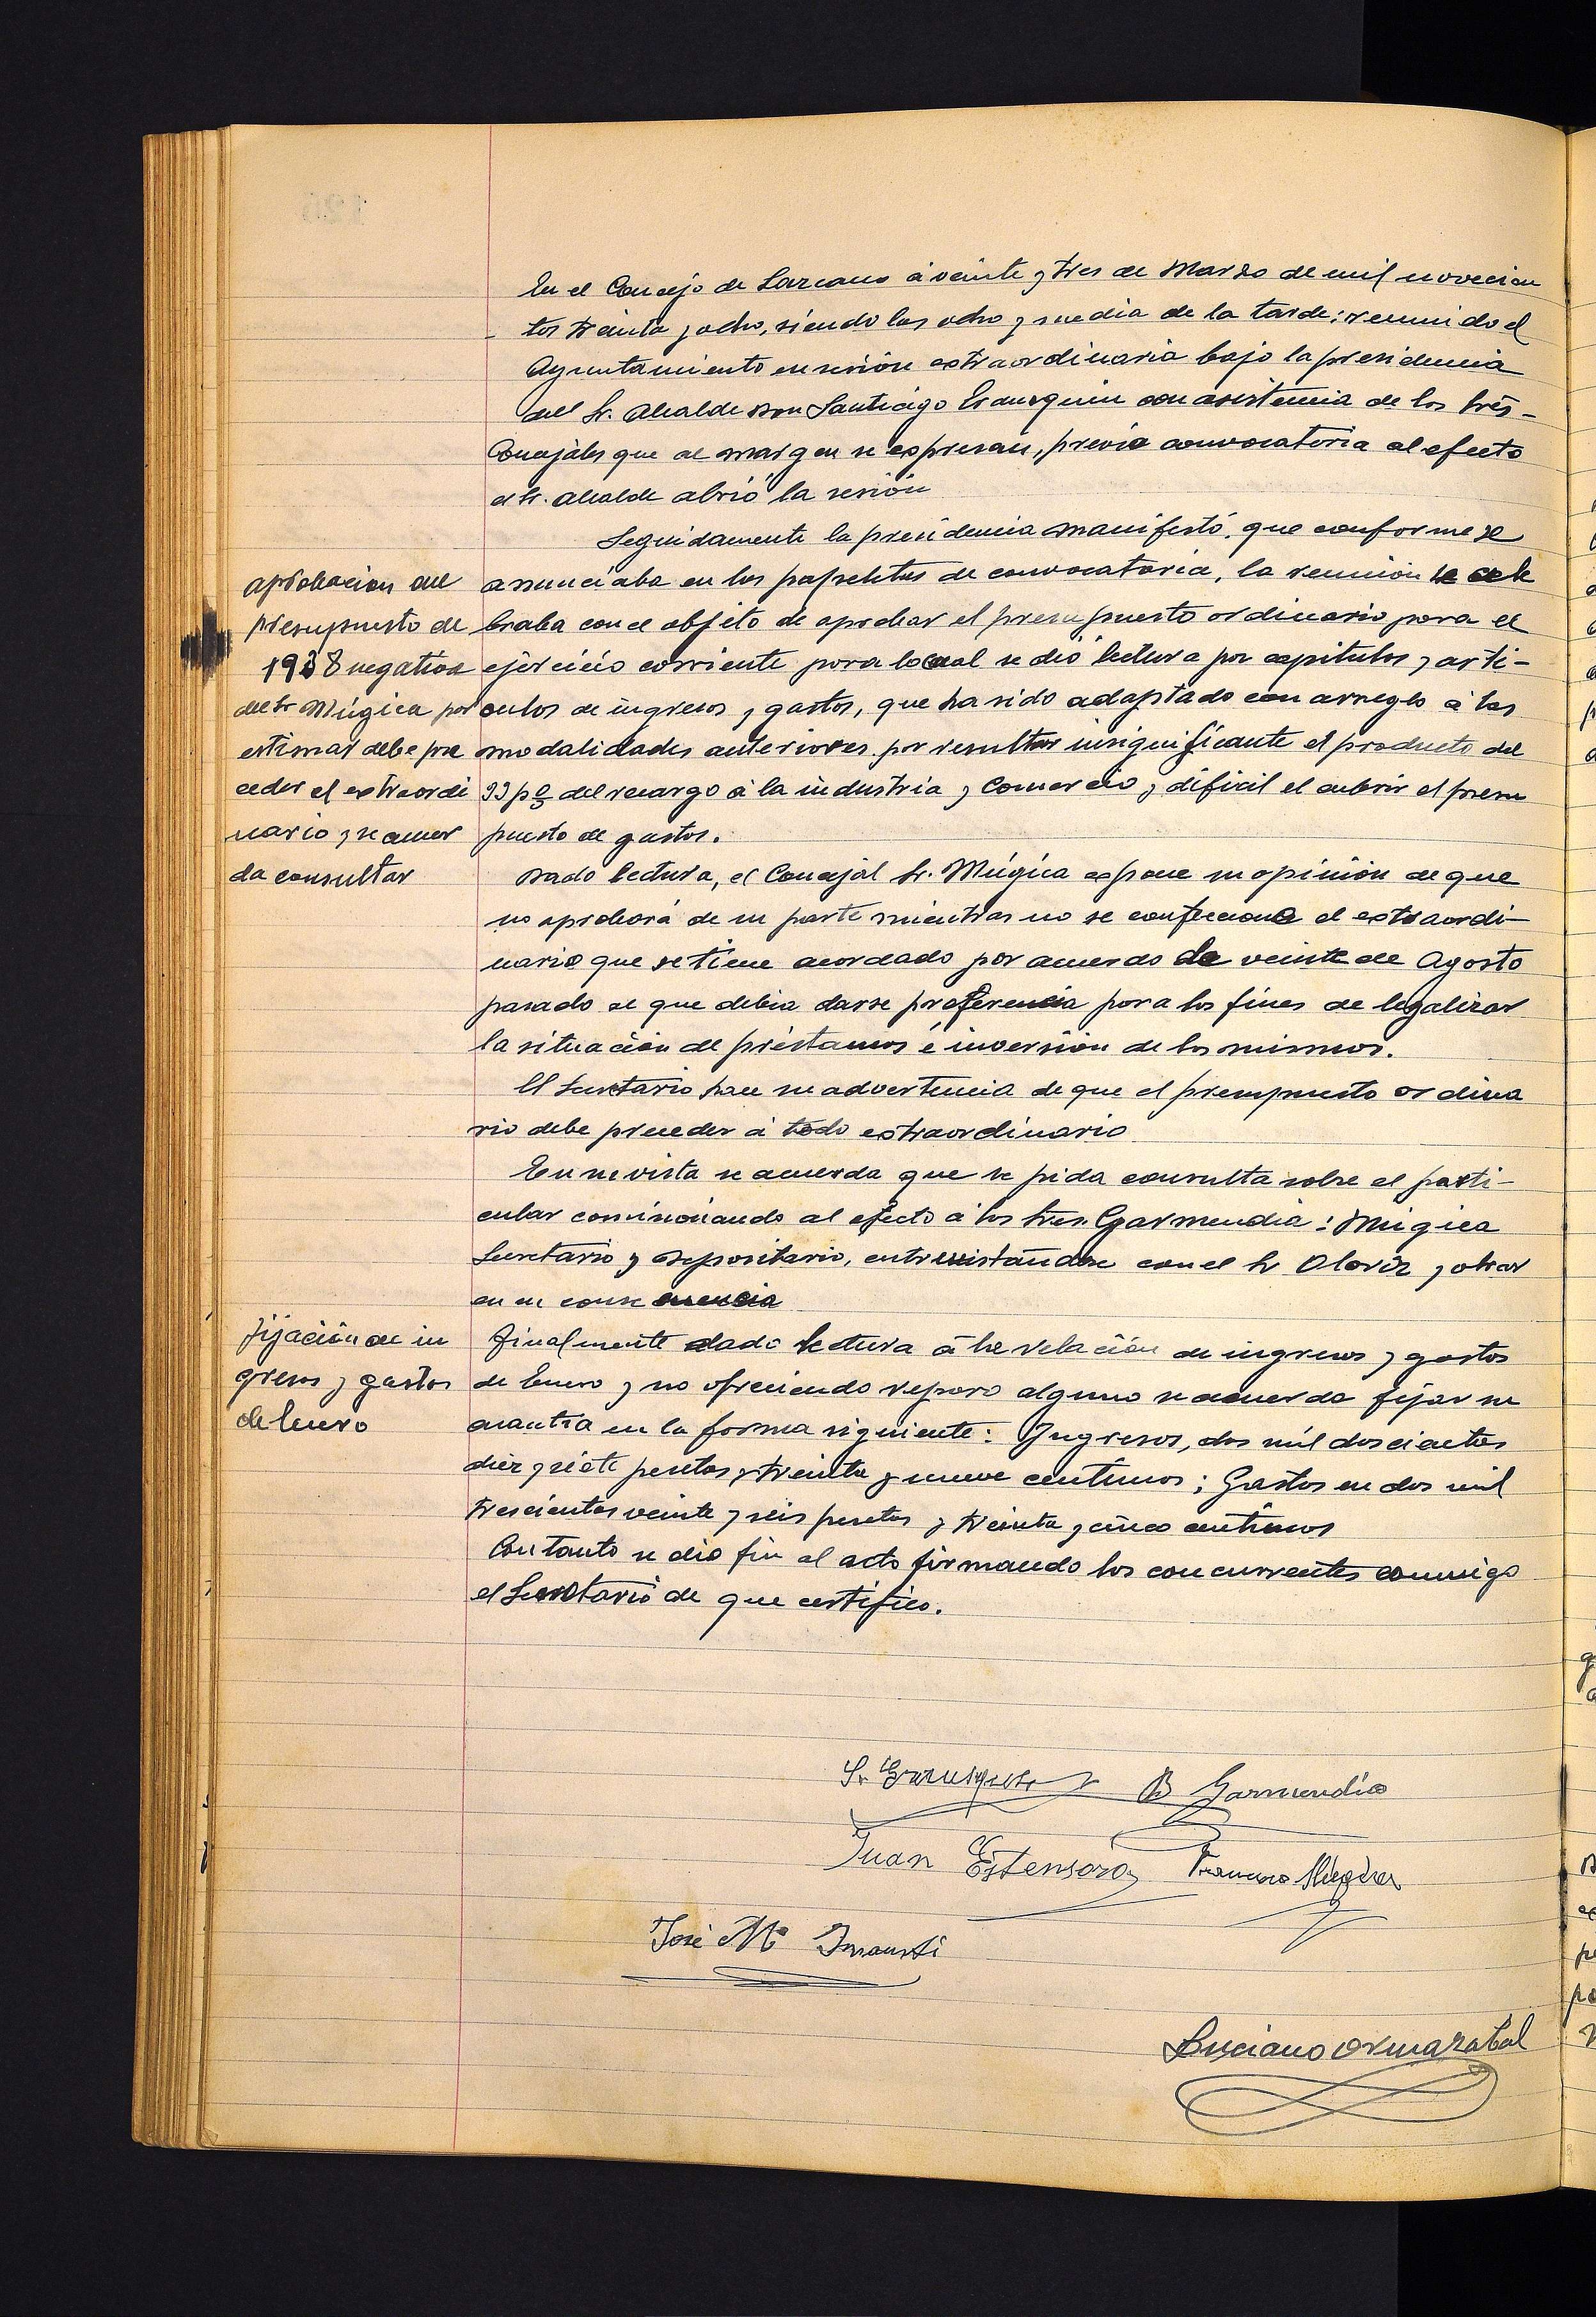 En el Concejo de Lazcano á veinte y tres de Marzo de mil novecien
tos treinta y ocho, siendo las ocho y media de la tarde; reunido el
Ayuntamiento en sesión extraordinaria bajo la presidencia
del Sr. Alcalde Don Santiago Erausquin con asistencia de los tres
Concejales que al margen se expresan, previa convocatoria al efecto
el Sr. Alcalde abrió la sesión
Seguidamente la presidencia manifestó, que conforme se
aprobacion del
presupuesto de
1938 negativa
del Sr Múgica por
estimar debe pre
ceder el extraordi
nario y se acuer
da consultar
anunciaba en las papeletas de convocatoria, la reunión se cele
braba con el objeto de aprobar el presupuesto ordinario para el
ejercicio corriente para lo cual se dió lectura por capitulos y arti-
culos de ingresos y gastos, que ha sido adaptado con arreglo á las
modalidades anteriores por resultar insignificante el producto del
33 pº del recargo á la industria y Comercio y dificil el cubrir el presu
puesto de gastos.
Dado lectura, el Concejal Sr. Múgica expone su opinión de que
no aprobará de su parte mientras no se confecciona el extraordi-
nario que se tiene acordado por acuerdo de veinte de Agosto
pasado al que debia darse preferencia para los fines de legalizar
la situación de préstamos é inversión de los mismos.
El Secretario hace su advertencia de que el presupuesto ordina
rio debe preceder á todo extraordinario
En su vista se acuerda que se pida consulta sobre el parti-
cular comisionando al efecto á los Sres. Garmendia: Múgica
Secretario y Depositario, entrevistandose con el Sr Oloriz y obrar
en su consecuencia
fijación de in
gresos y gastos
de Enero
Finalmente dado lectura á la relación de ingresos y gastos
de Enero y no ofreciendo reparo alguno se acuerda fijar su
cuantía en la forma siguiente: Ingresos, dos mil doscientos
diez y siete pesetas y treinta y nueve centimos; Gastos en dos mil
trescientas veinte y seis pesetas y treinta y cinco centimos
Con tanto se dió fin al acto firmando los concurrentes conmigo
el Secretario de que certifico.
S. Erausquin B Garmendia
Juan Estensoro Francisco Múgica
José Mª Imausti
Luciano Ormazabal